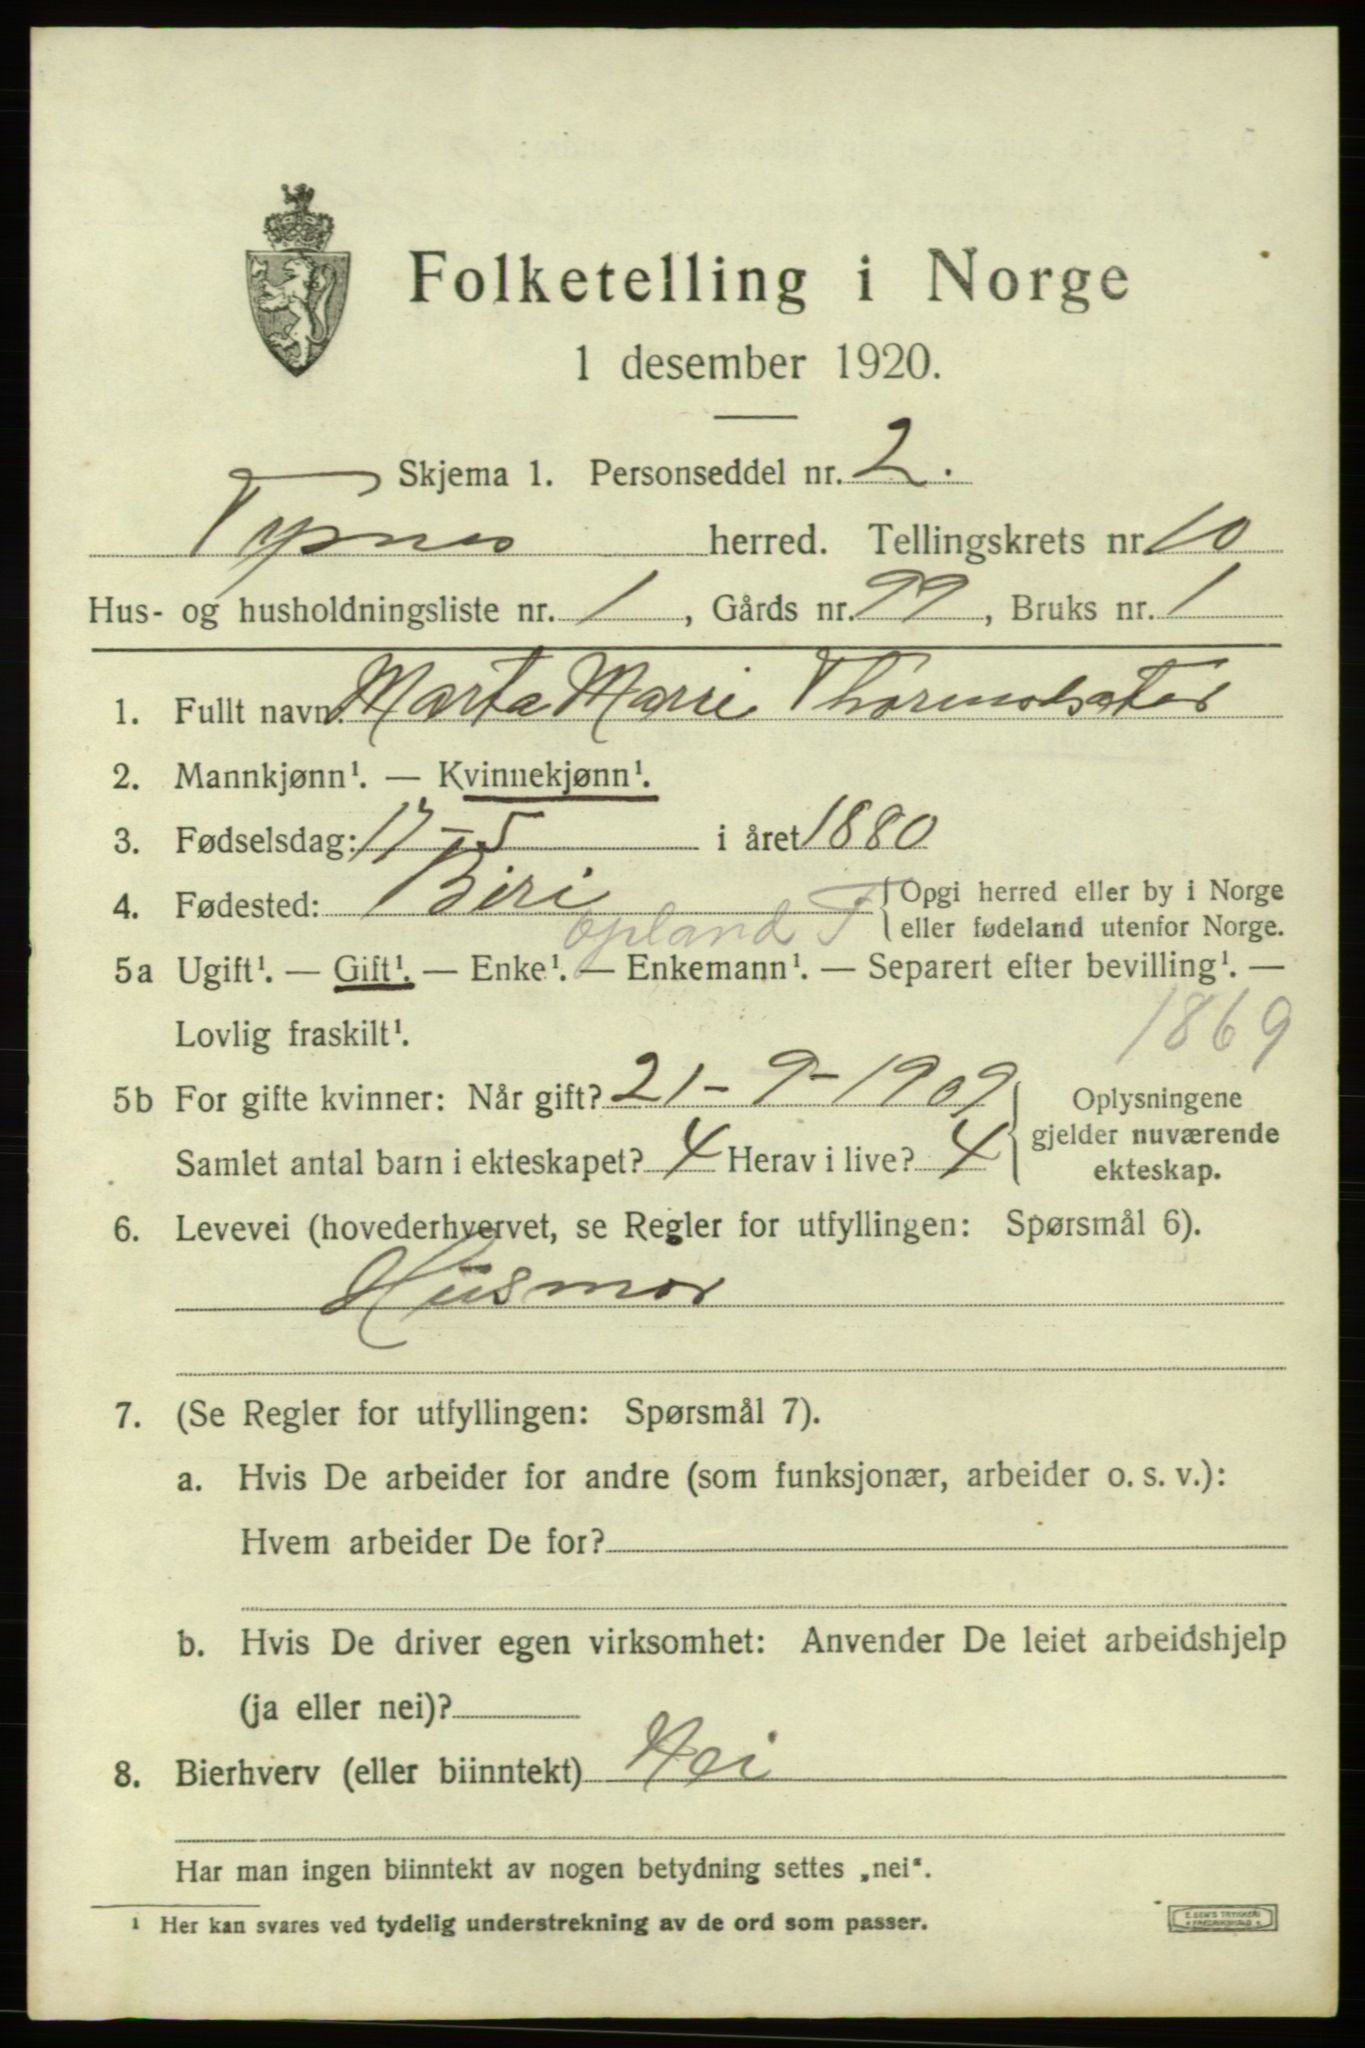 Folketelling i Norge
1 desember 1920.
Skjema 1. Personseddel nr. 2.
Tysnes herred. Tellingskrets nr 10
Hus- og husholdningsliste nr. 1, Gårds nr. 99, Bruks nr. 1
1. Fullt navn: Marta Marie
2. Mannkjønn¹. — Kvinnekjønn¹.
3. Fødselsdag: 17-5 i året 1880
4. Fødested: Biri {Opgi herred eller by i Norge
opland F eller fødeland utenfor Norge.
5a Ugift¹. — Gift¹. — Enke¹. — Enkemann¹. — Separert efter bevilling¹. —
Lovlig fraskilt¹. 1869
5b For gifte kvinner: Når gift? 21-9-1909 } Oplysningene
gjelder nuværende
Samlet antal barn i ekteskapet? 4 Herav i live? 4 ekteskap.
6. Levevei (hovederhvervet, se Regler for utfyllingen: Spørsmål 6).
Husmor
7. (Se Regler for utfyllingen: Spørsmål 7).
a. Hvis De arbeider for andre (som funksjonær, arbeider o. s. v.):
Hvem arbeider De for?
b. Hvis De driver egen virksomhet: Anvender De leiet arbeidshjelp
(ja eller nei)?
8. Bierhverv (eller biinntekt) Nei
Har man ingen biinntekt av nogen betydning settes „nei“.
¹ Her kan svares ved tydelig understrekning av de ord som passer.